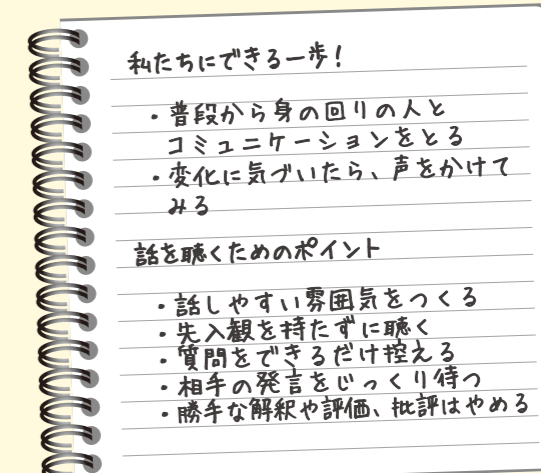 私たちにできる一歩!
・普段から身の回りの人と
コミュニケーションをとる
・変化に気づいたら、声をかけて
みる
話を聴くためのポイント
・話しやすい雰囲気をつくる
・先入観を持たずに聴く
・質問をできるだけ控える
・相手の発言をじっくり待つ
・勝手な解釈や評価、批評はやめる